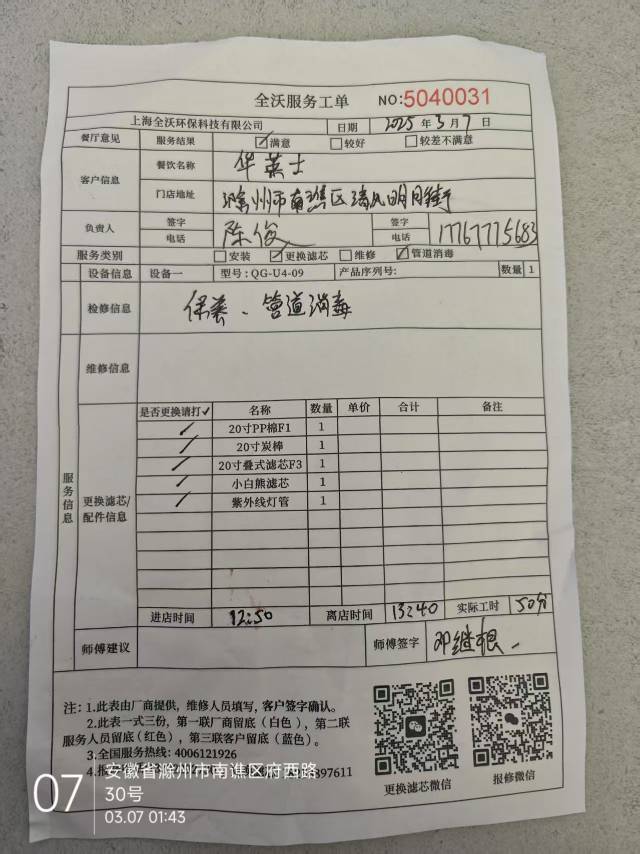 全沃服务工单 NO:5040031
上海全沃环保科技有限公司 日期 2025 年 3 月 7 日
餐厅意见 服务结果 ☑满意 □较好 □较差不满意
客户信息 餐饮名称 华莱士
门店地址 滁州市南谯区 明月街
负责人 签字 陈俊 签字
电话 电话 17767775683
服务类别 □安装 ☑更换滤芯 □维修 ☑管道消毒
设备信息 设备一 型号:QG-U4-09 产品序列号: 数量 1
检修信息 保养、管道消毒
维修信息
服务信息
更换滤芯/配件信息
是否更换请打✓ 名称 数量 单价 合计 备注
✓ 20寸PP棉F1 1
✓ 20寸炭棒 1
✓ 20寸叠式滤芯F3 1
✓ 小白熊滤芯 1
✓ 紫外线灯管 1
进店时间 12:50 离店时间 13:40 实际工时 50分
师傅建议 师傅签字 邓继根
注: 1.此表由厂商提供，维修人员填写，客户签字确认。
2.此表一式三份，第一联厂商留底（白色），第二联
服务人员留底(红色），第三联客户留底（蓝色）。
3.全国服务热线: 4006121926
4.报 397611
更换滤芯微信 报修微信
07
安徽省滁州市南谯区府西路
30号
03.07 01:43